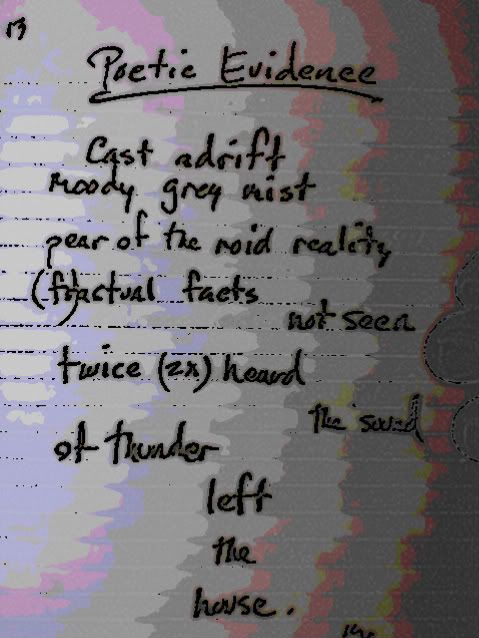 13
Poetic Evidence
Cast adrift
moody grey mist
pear of the roid reality
(fractual facts
not seen
twice (2x) heard
the sound
of thunder
left
the
house.